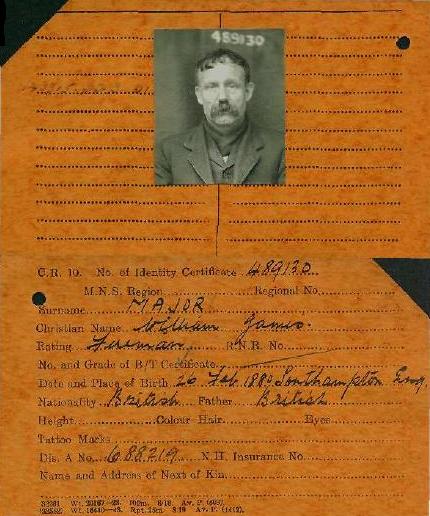 489130
C.R. 10. No. of Identity Certificate 489130
M.N.S. Region Regional No.
Surname MAJOR
Christian Name William James.
Rating Fireman R.N.R. No.
No. and Grade of B/T Certificate
Date and Place of Birth 26 Feb. 1880 Southampton Eng.
Nationality British Father British
Height Colour Hair Eyes
Tattoo Marks
Dis. A No. 688219 N.H. Insurance No.
Name and Address of Next of Kin